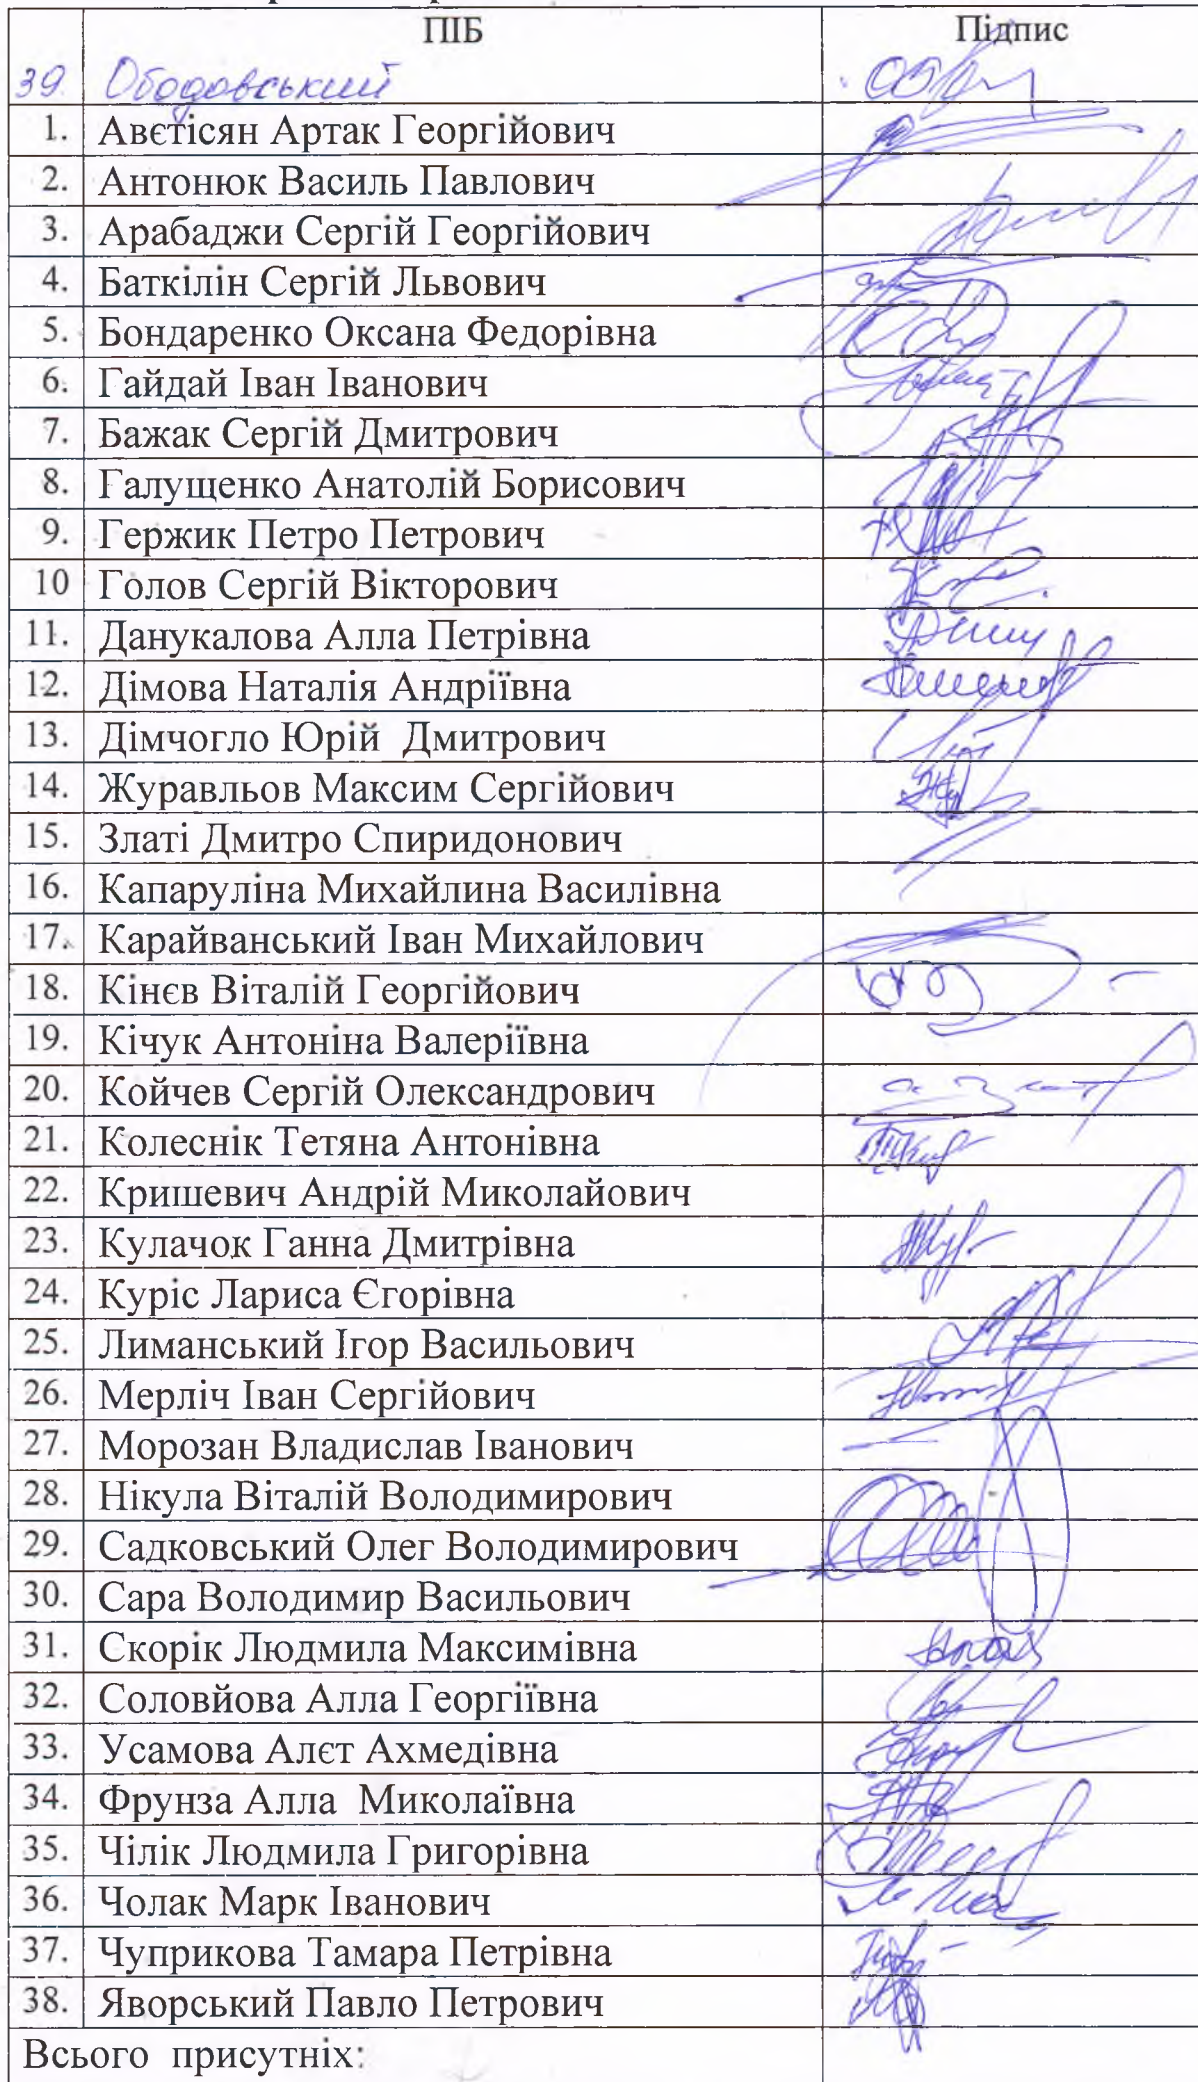 ПІБ Підпис
39. Ободовський
1. Авєтісян Артак Георгійович
2. Антонюк Василь Павлович
3. Арабаджи Сергій Георгійович
4. Баткілін Сергій Львович
5. Бондаренко Оксана Федорівна
6. Гайдай Іван Іванович
7. Бажак Сергій Дмитрович
8. Галущенко Анатолій Борисович
9. Гержик Петро Петрович
10 Голов Сергій Вікторович
11. Данукалова Алла Петрівна
12. Дімова Наталія Андріївна
13. Дімчогло Юрій Дмитрович
14. Журавльов Максим Сергійович
15. Златі Дмитро Спиридонович
16. Капаруліна Михайлина Василівна
17. Карайванський Іван Михайлович
18. Кінєв Віталій Георгійович
19. Кічук Антоніна Валеріївна
20. Койчев Сергій Олександрович
21. Колеснік Тетяна Антонівна
22. Кришевич Андрій Миколайович
23. Кулачок Ганна Дмитрівна
24. Куріс Лариса Єгорівна
25. Лиманський Ігор Васильович
26. Мерліч Іван Сергійович
27. Морозан Владислав Іванович
28. Нікула Віталій Володимирович
29. Садковський Олег Володимирович
30. Сара Володимир Васильович
31. Скорік Людмила Максимівна
32. Соловйова Алла Георгіївна
33. Усамова Алєт Ахмедівна
34. Фрунза Алла Миколаївна
35. Чілік Людмила Григорівна
36. Чолак Марк Іванович
37. Чуприкова Тамара Петрівна
38. Яворський Павло Петрович
Всього присутніх: